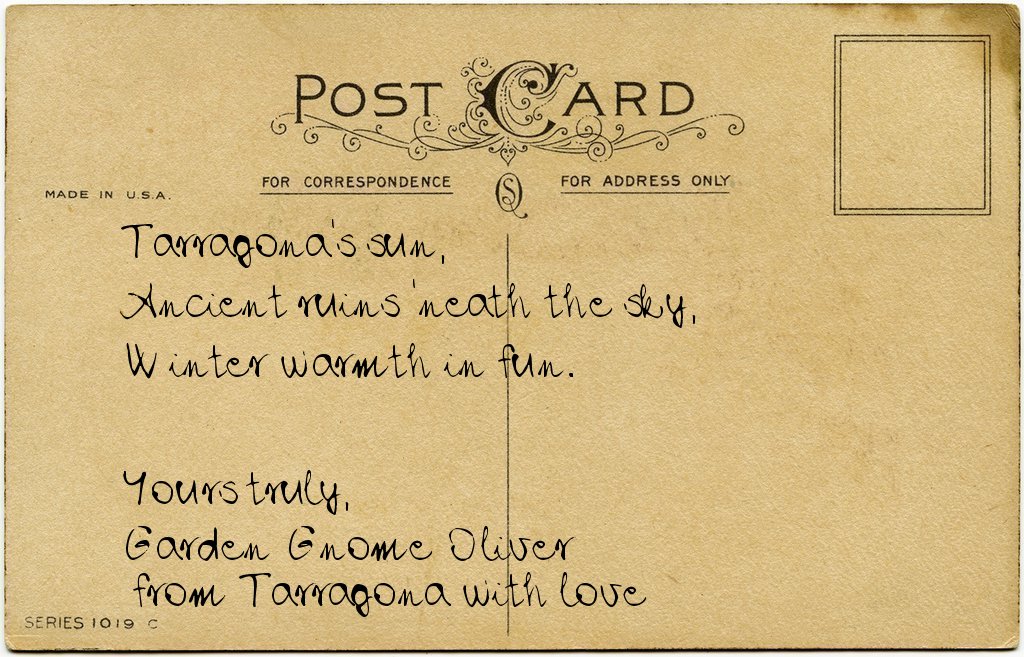 POST CARD
FOR CORRESPONDENCE
FOR ADDRESS ONLY
MADE IN U.S.A.
Tarragona's sun,
Ancient ruins 'neath the sky,
Winter warmth in fun.
Yours truly,
Garden Gnome Oliver
from Tarragona with love
SERIES 1019 C